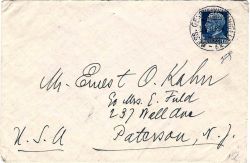 Mr. Ernest O. Kahn
c/o Mrs. E. Fuld
237 Wall Ave
Paterson, N. J.
U. S. A